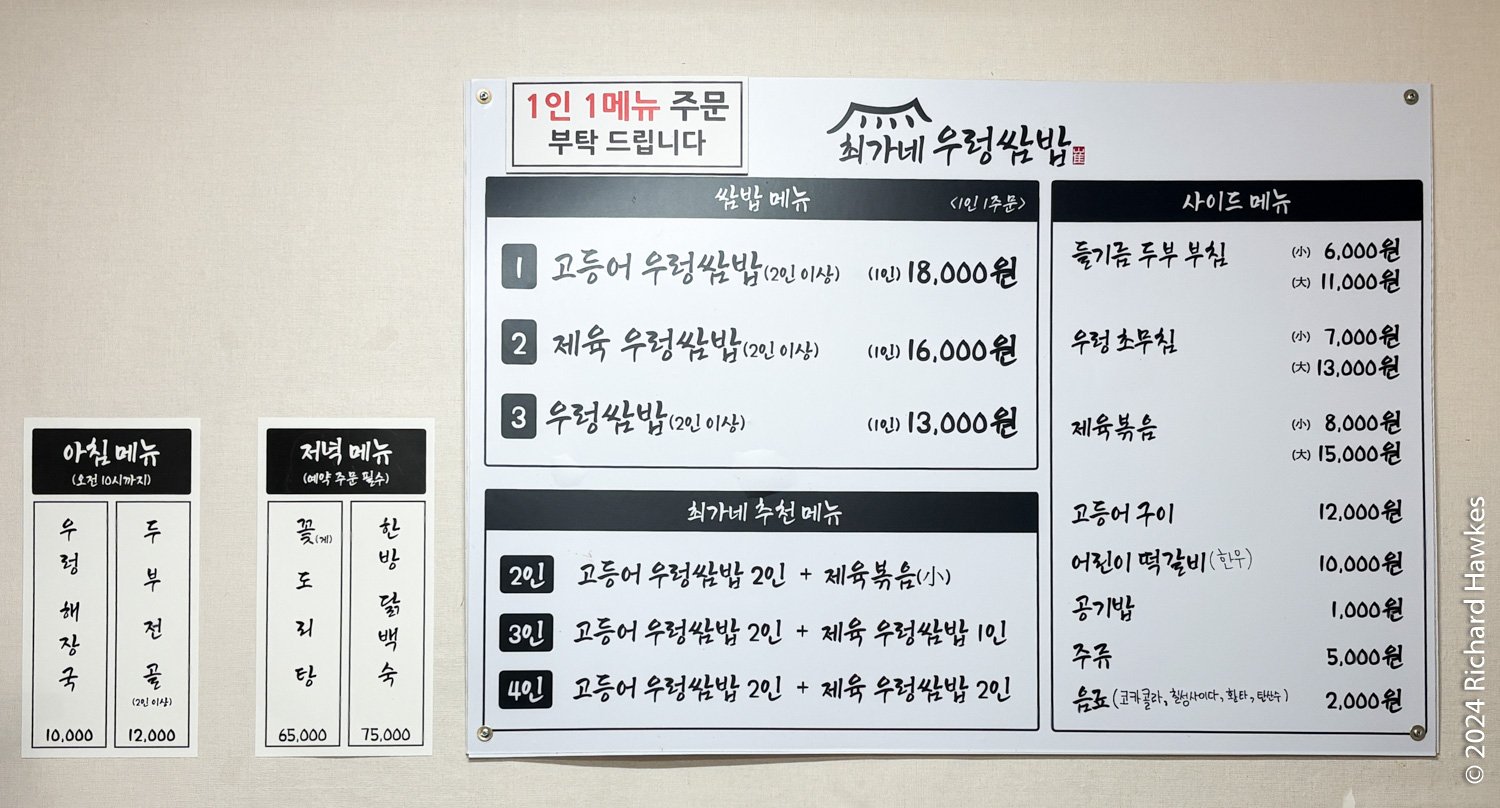 아침 메뉴
(오전 10시까지)
우렁 해장국
10,000
두부전골
(2인 이상)
12,000
저녁 메뉴
(예약 주문 필수)
꽃(게)도리탕
65,000
한방 닭백숙
75,000
1인 1메뉴 주문
부탁 드립니다
최가네 우렁쌈밥
崔
쌈밥 메뉴 <1인 1주문>
1 고등어 우렁쌈밥(2인 이상) (1인) 18,000원
2 제육 우렁쌈밥(2인 이상) (1인) 16,000원
3 우렁쌈밥(2인 이상) (1인) 13,000원
최가네 추천 메뉴
2인 고등어 우렁쌈밥 2인 + 제육볶음(小)
3인 고등어 우렁쌈밥 2인 + 제육 우렁쌈밥 1인
4인 고등어 우렁쌈밥 2인 + 제육 우렁쌈밥 2인
사이드 메뉴
들기름 두부 부침 (小) 6,000원
(大) 11,000원
우렁 초무침 (小) 7,000원
(大) 13,000원
제육볶음 (小) 8,000원
(大) 15,000원
고등어 구이 12,000원
어린이 떡갈비(한우) 10,000원
공기밥 1,000원
주류 5,000원
음료(코카콜라, 칠성사이다, 환타, 탄산수) 2,000원
© 2024 Richard Hawkes